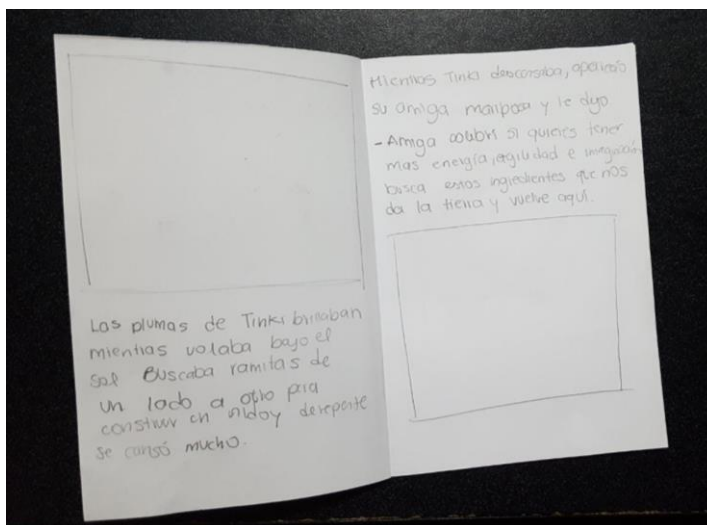 Las plumas de Tinki brillaban
mientras volaba bajo el
sol Buscaba ramitas de
un lado a otro para
construir un nido y derepente
se cansó mucho.
Mientras Tinki descansaba, apareció
su amiga mariposa y le dijo
- Amiga colibri si quieres tener
mas energía, agilidad e imaginación
busca estos ingredientes que nos
da la tierra y vuelve aquí.